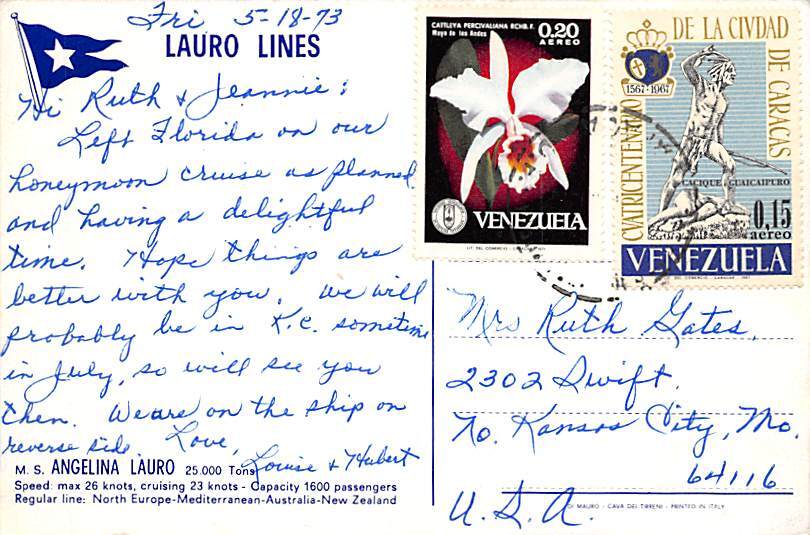 Fri 5-18-73
LAURO LINES
Hi Ruth & Jeannie:
Left Florida on our
honeymoon cruise as planned
and having a delightful
time. Hope things are
better with you. We will
probably be in K.C. sometime
in July, so will see you
then. We are on the ship on
reverse side. Love,
Louise & Hubert
M. S. ANGELINA LAURO 25.000 Tons
Speed: max 26 knots, cruising 23 knots - Capacity 1600 passengers
Regular line: North Europe-Mediterranean-Australia-New Zealand
CATTLEYA PERCIVALIANA RCHB. F.
Mayo de los Andes
0.20
AEREO
VENEZUELA
CVATRICENTENARIO
DE LA CIVDAD
DE CARACAS
1567-1967
CACIQUE GUAICAIPURO
0,15
aereo
VENEZUELA
Mrs Ruth Gates,
2302 Swift.
No. Kansas City, Mo.
64116
U.S.A.
DI MAURO - CAVA DEI TIRRENI - PRINTED IN ITALY